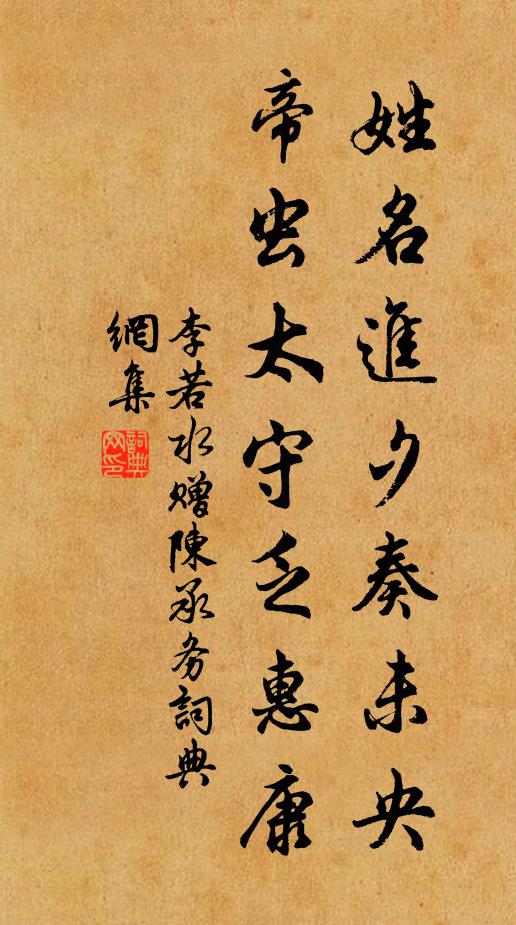 姓名進夕奏未央
帝虫太守乏惠康
李若水贈陳承务詞典
網集
詞典
网印